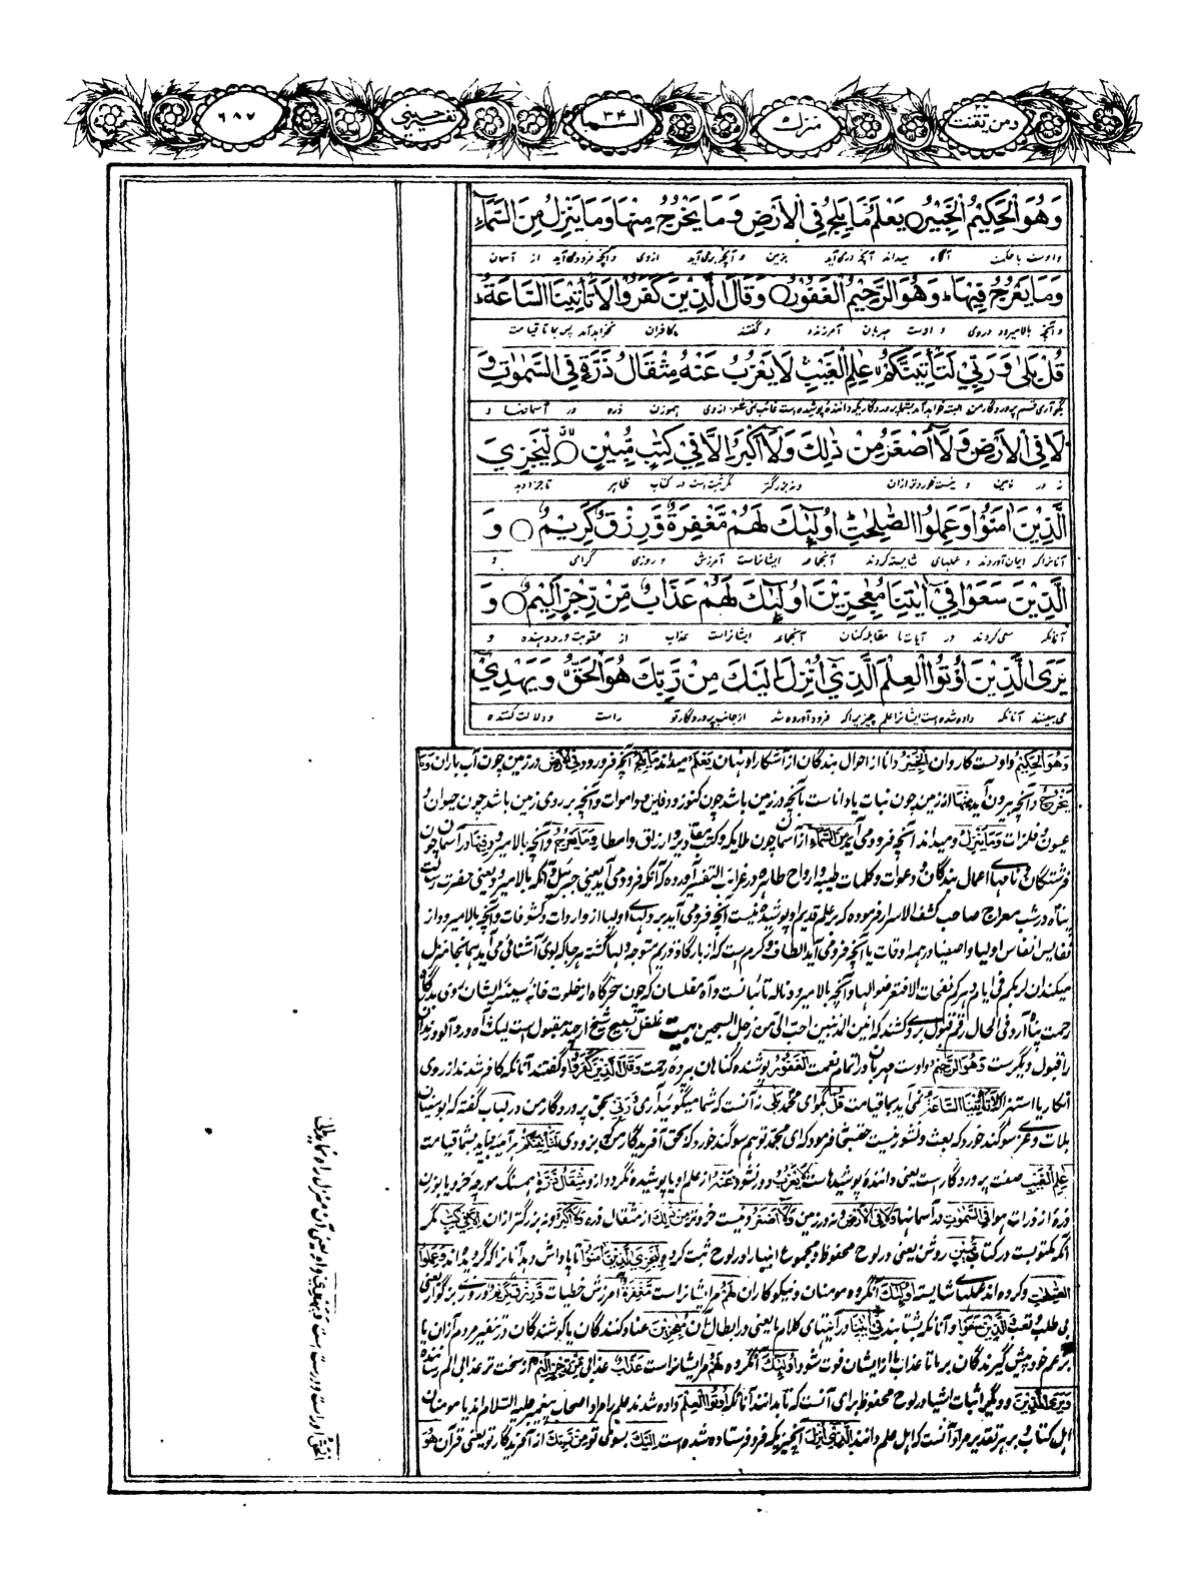 ومن یقنت ۲۲
منزل
السبا ۳۴
تفسیر حسینی
۶۸۷
وَهُوَ الْحَكِيْمُ الْخَبِيْرُ ○ يَعْلَمُ مَا يَلِجُ فِي الْاَرْضِ وَمَا يَخْرُجُ مِنْهَا وَمَا يَنْزِلُ مِنَ السَّمَآءِ
و اوست با حکمت آگاه میداند آنچه درمی‌آید بزمین و آنچه برمی‌آید ازوی و آنچه فرودمی‌آید از آسمان
وَمَا يَعْرُجُ فِيْهَا وَهُوَ الرَّحِيْمُ الْغَفُوْرُ ○ وَقَالَ الَّذِيْنَ كَفَرُوْا لَا تَأْتِيْنَا السَّاعَةُ
و آنچه بالا میرود دروی و اوست مهربان آمرزنده و گفتند کافران نخواهد آمد بما قیامت
قُلْ بَلٰى وَرَبِّيْ لَتَأْتِيَنَّكُمْ عٰلِمِ الْغَيْبِ لَا يَعْزُبُ عَنْهُ مِثْقَالُ ذَرَّةٍ فِي السَّمٰوٰتِ وَ
بگو آری قسم پروردگار من البته خواهد آمد بشما پروردگاریکه داننده پوشیده است غائب نمی‌شود ازوی هموزن ذره در آسمانها و
لَا فِي الْاَرْضِ وَلَا اَصْغَرُ مِنْ ذٰلِكَ وَلَا اَكْبَرُ اِلَّا فِيْ كِتٰبٍ مُّبِيْنٍ ○ لِّيَجْزِيَ
نه در زمین و نیست خوردتر ازان و نه بزرگتر مگر ثبت است در کتاب ظاهر تا جزا دهد
الَّذِيْنَ اٰمَنُوْا وَعَمِلُوا الصّٰلِحٰتِ اُولٰٓئِكَ لَهُمْ مَّغْفِرَةٌ وَّرِزْقٌ كَرِيْمٌ ○ وَ
آنانرا که ایمان آوردند و عملهای شایسته کردند آنجماعه ایشانراست آمرزش و روزی گرامی و
الَّذِيْنَ سَعَوْا فِيْٓ اٰيٰتِنَا مُعٰجِزِيْنَ اُولٰٓئِكَ لَهُمْ عَذَابٌ مِّنْ رِّجْزٍ اَلِيْمٌ ○ وَ
آنانکه سعی کردند در آیات ما مقابله کنان آنجماعه ایشانراست عذاب از عقوبت درد دهنده و
يَرَى الَّذِيْنَ اُوْتُوا الْعِلْمَ الَّذِيْٓ اُنْزِلَ اِلَيْكَ مِنْ رَّبِّكَ هُوَ الْحَقَّ وَيَهْدِيْٓ
می بینند آنانکه داده شده است ایشانرا علم چیزیرا که فرود آورده شد از جانب پروردگار تو راست و دلالت کننده
وَهُوَ الْحَكِيْمُ و اوست کاروان الْخَبِيْرُ دانا از احوال بندگان از آشکارا و نهان يَعْلَمُ میداند مَا يَلِجُ آنچه فرو رود فِي الْاَرْضِ در زمین چون آب باران وَمَا
يَخْرُجُ و آنچه بیرون آید مِنْهَا از زمین چون نبات یا داناست بآنچه در زمین باشد چون کنوز و دفاین و اموات و آنچه بر روی زمین باشد چون حیوان و
عیون و فلزات وَمَا يَنْزِلُ و میداند آنچه فرود می آید مِنَ السَّمَآءِ از آسمان چون ملایکه و کتب و مقادیر و ارزاق و امطار وَمَا يَعْرُجُ و آنچه بالا میرود فِيْهَا در آسمان چون
فرشتگان و نامهای اعمال بندگان و دعوات و کلمات طیبه و ارواح طاهره در غرایب التفسیر آورده که آنکه فرود می آید یعنی جبرئیل و آنکه بالا میرود یعنی حضرت رسالت
پناه در شب معراج صاحب کشف الاسرار فرموده که بر علم قدیم او پوشیده نیست آنچه فرو می آید بر دلهای اولیا از واردات و کشوفات و آنچه بالا میرود از
نفایس انفاس اولیا و اصفیا در همه اوقات یا آنچه فرو می آید الطاف و کرم است که از بارگاه قدیم متوجه دلها گشته هر جا که بوی آشنائی می آید همانجا منزل
میکند ان لربکم فی ایام دهرکم نفحات الا فتعرضوا لها و آنچه بالا میرود ناله تائبانست و آه مفلسان که چون سحرگاه از خلوت خانه سینه ایشان روی بدرگاه
رحمت پناه آرد فی الحال رقم قبول بر وی کشند که انین المذنبین احب الی من زجل المسبحین بیت غلغل تسبیح شیخ ارچند مقبول است لیک آه درد آلود رندان
را قبول دیگرست وَهُوَ الرَّحِيْمُ و اوست مهربان در اتمام نعمت الْغَفُوْرُ پوشنده گناهان بپرده رحمت وَقَالَ الَّذِيْنَ كَفَرُوْا و گفتند آنانکه کافر شدند از روی
انکار یا استهزا لَا تَأْتِيْنَا السَّاعَةُ نمی آید بما قیامت قُلْ بگو ای محمد بَلٰى نه آنست که شما میگوئید آری وَرَبِّيْ بحق پروردگار من در لباب گفته که ابوسفیان
بلات و عزی سوگند خورد که بعث و نشور نیست حقتعالی فرمود که ای محمد تو هم سوگند خور که بحق آفریدگار من که بزودی لَتَأْتِيَنَّكُمْ هر آینه بیاید بشما قیامت
عٰلِمِ الْغَيْبِ صفت پروردگار است یعنی داننده پوشیدهاست لَا يَعْزُبُ دور نشود عَنْهُ از علم او یا پوشیده نگردد ازو مِثْقَالُ ذَرَّةٍ همسنگ مورچه خرد یا بوزن
ذره از ذرات هوا فِي السَّمٰوٰتِ در آسمانها وَلَا فِي الْاَرْضِ و نه در زمین وَلَا اَصْغَرُ و نیست خردتر مِنْ ذٰلِكَ از مثقال ذره وَلَا اَكْبَرُ و نه بزرگتر ازان اِلَّا فِيْ كِتٰبٍ مگر
آنکه مکتوبست در کتاب مُّبِيْنٍ روشن یعنی در لوح محفوظ و مجموع اینها را در لوح ثبت کرد لِيَجْزِيَ الَّذِيْنَ اٰمَنُوْا تا پاداش دهد آنانرا که گرویده اند وَعَمِلُوا
الصّٰلِحٰتِ و کرده اند عملهای شایسته اُولٰٓئِكَ آنگروه مومنان و نیکوکاران لَهُمْ مر ایشانراست مَّغْفِرَةٌ آمرزش خطیات وَرِزْقٌ كَرِيْمٌ و روزی بزرگوار یعنی
بی طلب و تعب وَالَّذِيْنَ سَعَوْا و آنانکه بشتابند فِيْٓ اٰيٰتِنَا در آیتهای کلام ما یعنی در ابطال آن مُعٰجِزِيْنَ عنادکنندگان یا کوشندگان در تنفیر مردم ازان یا
بزعم خود پیش گیرندگان بر ما تا عذاب ما از ایشان فوت شود اُولٰٓئِكَ آنگروه لَهُمْ مر ایشانراست عَذَابٌ عذابی مِّنْ رِّجْزٍ اَلِيْمٌ از سخت تر عذابی الم رساننده
وَيَرَى الَّذِيْنَ و دیگر اثبات اشیا در لوح محفوظ برای آنست که تا بدانند آنانکه اُوْتُوا الْعِلْمَ داده شدند علم را مراد اصحاب پیغمبر علیه السلام اند یا مومنان
اهل کتاب و بر هر تقدیر مراد آنست که اهل علم دانند الَّذِيْٓ اُنْزِلَ آنچیزیکه فرو فرستاده شده است اِلَيْكَ بسوی تو مِنْ رَّبِّكَ از آفریدگار تو یعنی قرآن هُوَ
الْحَقَّ او راست و درست است وَيَهْدِيْٓ و او یعنی آن منزل راه نماید